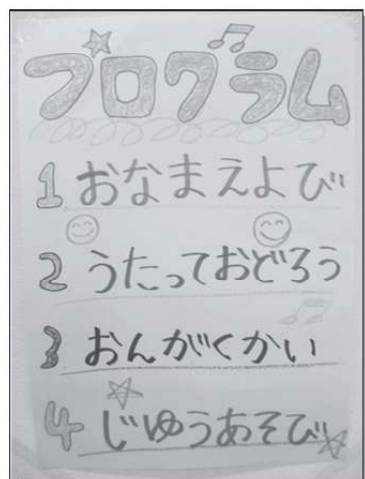 プログラム
1 おなまえよび
2 うたっておどろう
3 おんがくかい
4 じゆうあそび